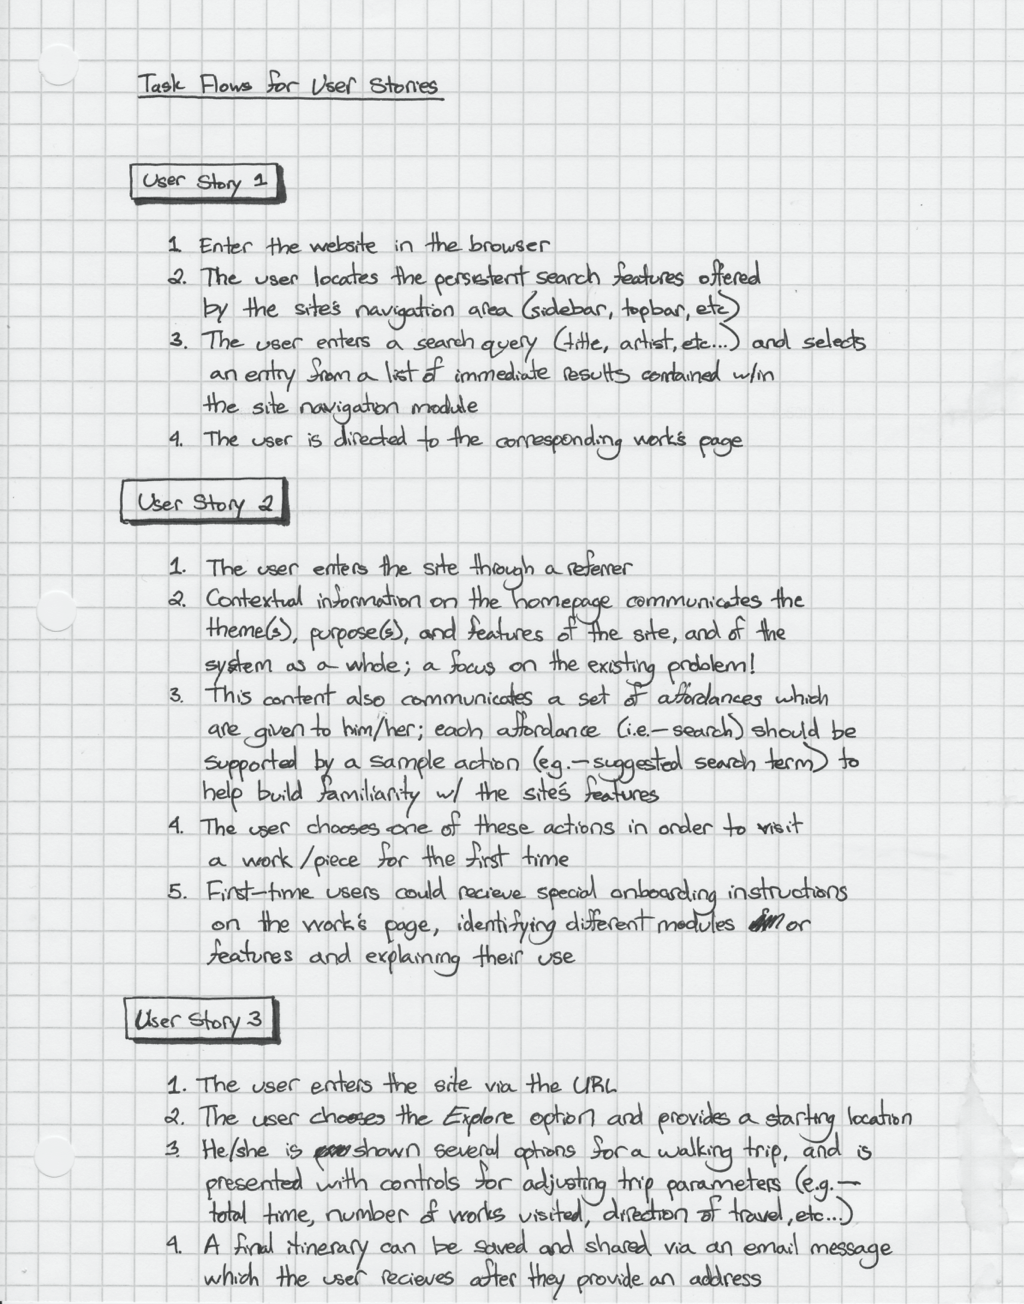 Task Flows for User Stories
User Story 1
1. Enter the website in the browser
2. The user locates the persistent search features offered
by the site's navigation area (sidebar, topbar, etc)
3. The user enters a search query (title, artist, etc...) and selects
an entry from a list of immediate results contained w/in
the site navigation module
4. The user is directed to the corresponding work's page
User Story 2
1. The user enters the site through a referrer
2. Contextual information on the homepage communicates the
theme(s), purpose(s), and features of the site, and of the
system as a whole; a focus on the existing problem!
3. This content also communicates a set of affordances which
are given to him/her; each affordance (i.e.-search) should be
supported by a sample action (eg.-suggested search term) to
help build familiarity w/ the site's features
4. The user chooses one of these actions in order to visit
a work/piece for the first time
5. First-time users could recieve special onboarding instructions
on the work's page, identifying different modules or
features and explaining their use
User Story 3
1. The user enters the site via the URL
2. The user chooses the Explore option and provides a starting location
3. He/she is shown several options for a walking trip, and is
presented with controls for adjusting trip parameters (e.g.-
total time, number of works visited, direction of travel, etc...)
4. A final itinerary can be saved and shared via an email message
which the user recieves after they provide an address